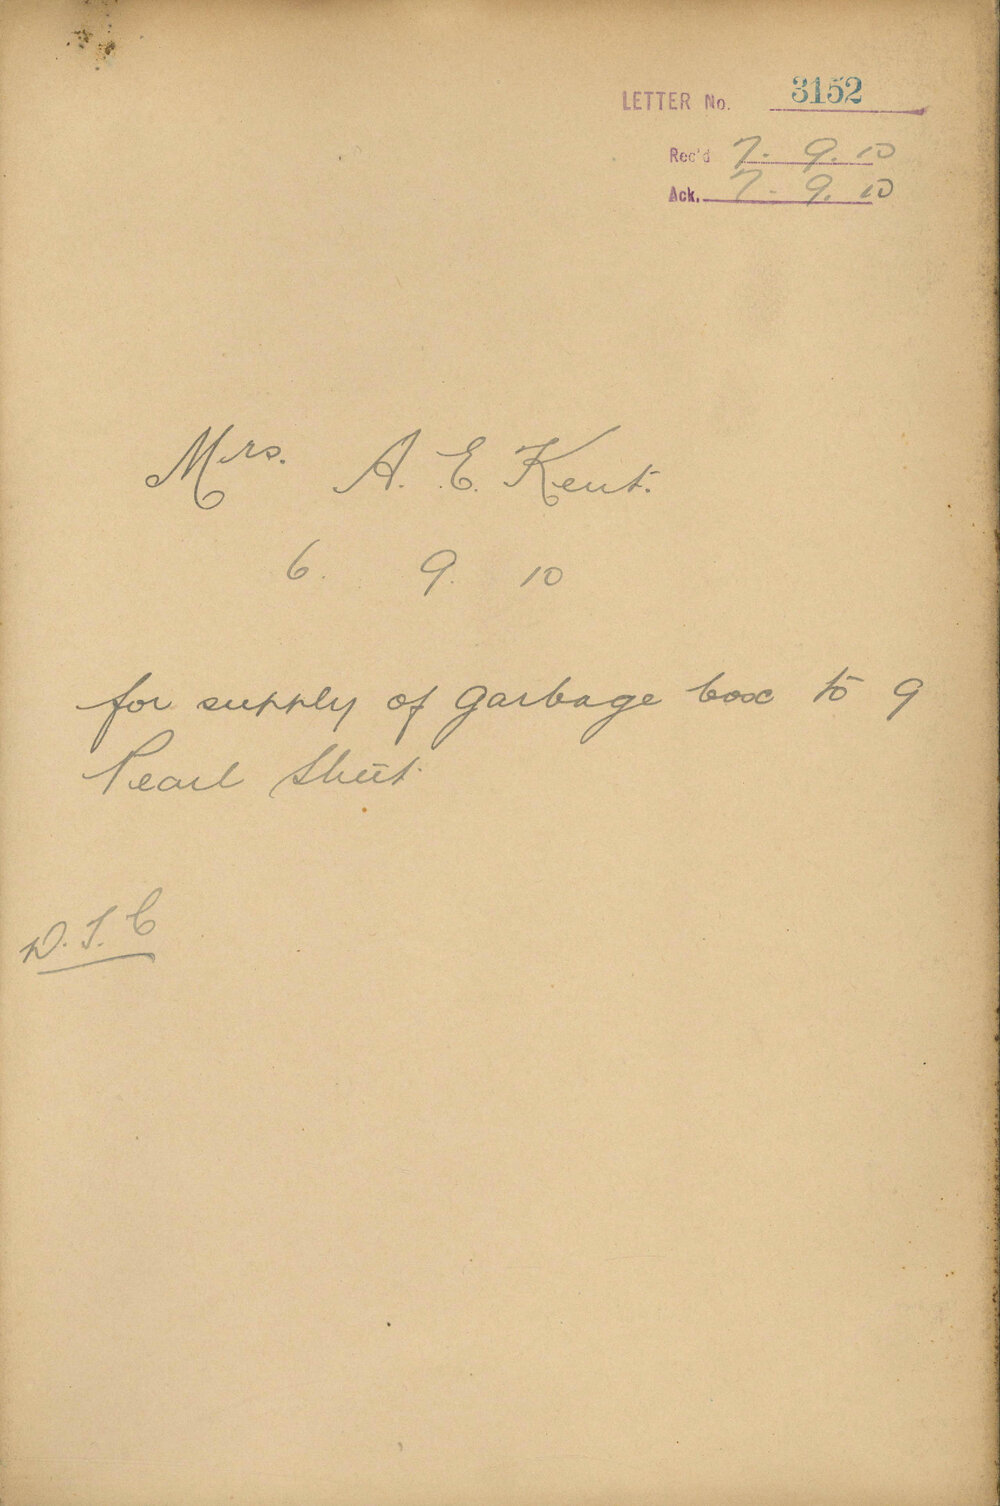 LETTER No. 3152
Rec'd 7. 9. 10
Ack. 7. 9. 10
Mrs. A. E. Kent.
6. 9. 10
for supply of garbage box to 9
Pearl Street